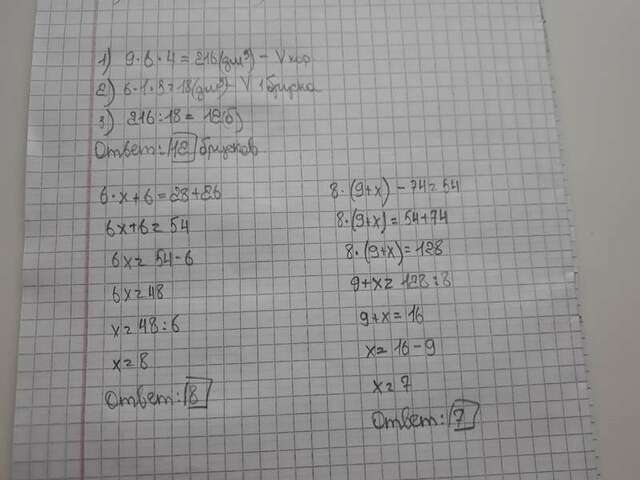 1) 9·6·4=216(дм³) - V кор
2) 6·1·3=18(дм³) - V 1 бруска
3) 216:18=12(б)
Ответ: 12 брусков.
6·x+6=28+26
6x+6=54
6x=54-6
6x=48
x=48:6
x=8
Ответ: 8
8·(9+x)-74=54
8·(9+x)=54+74
8·(9+x)=128
9+x=128:8
9+x=16
x=16-9
x=7
Ответ: 7